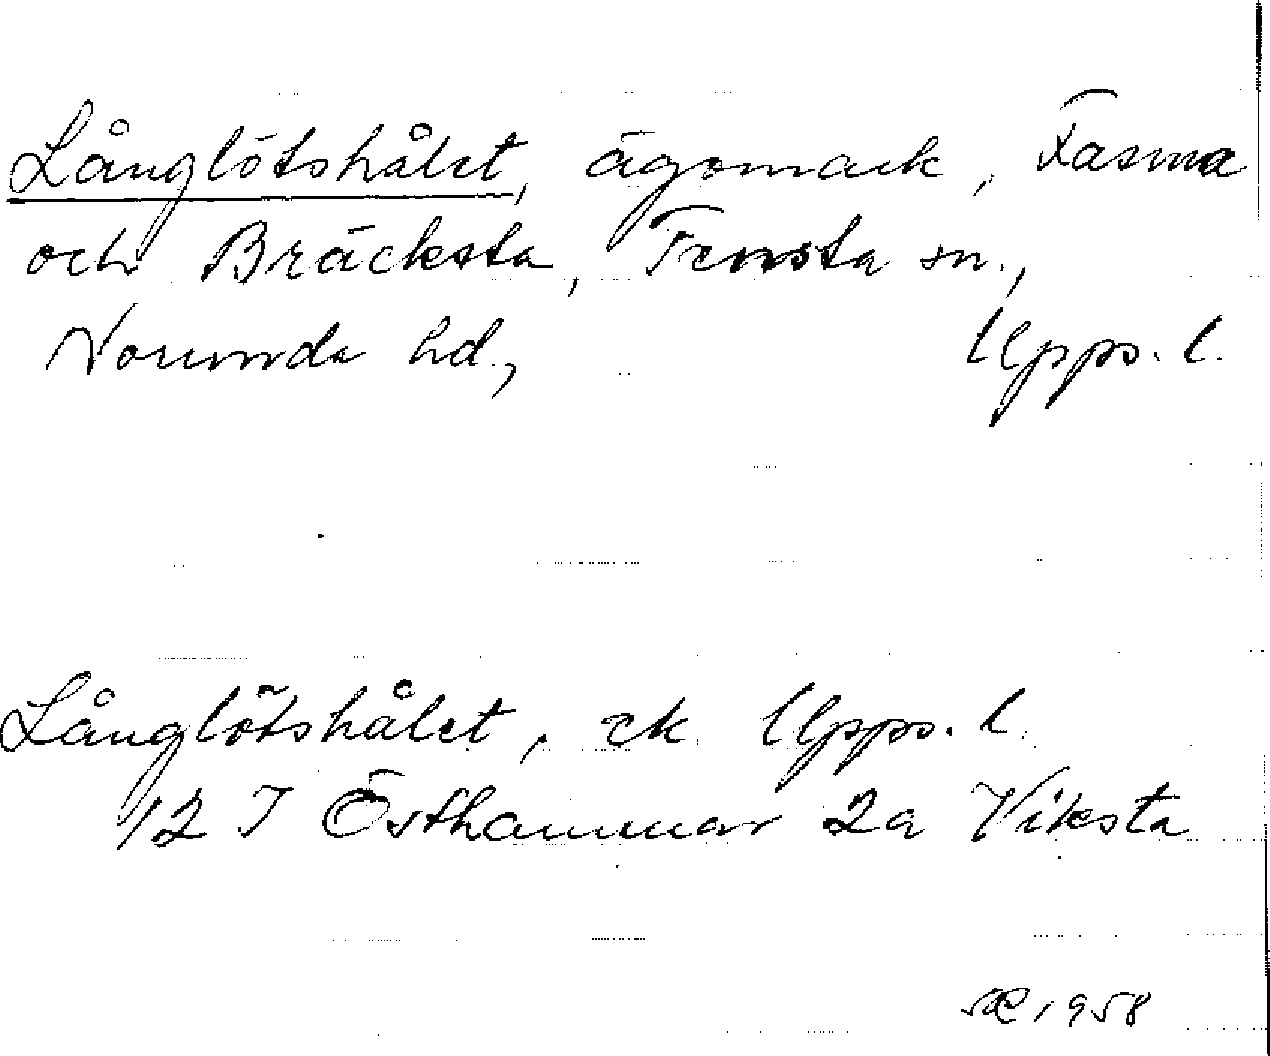 Långlötshålet, ägomark, Fasma
och Bräcksta, Tensta sn.,
Norunda hd., Upps. l.
Långlötshålet, ek. Upps. l.
12 I Östhammar 2a Viksta
1958